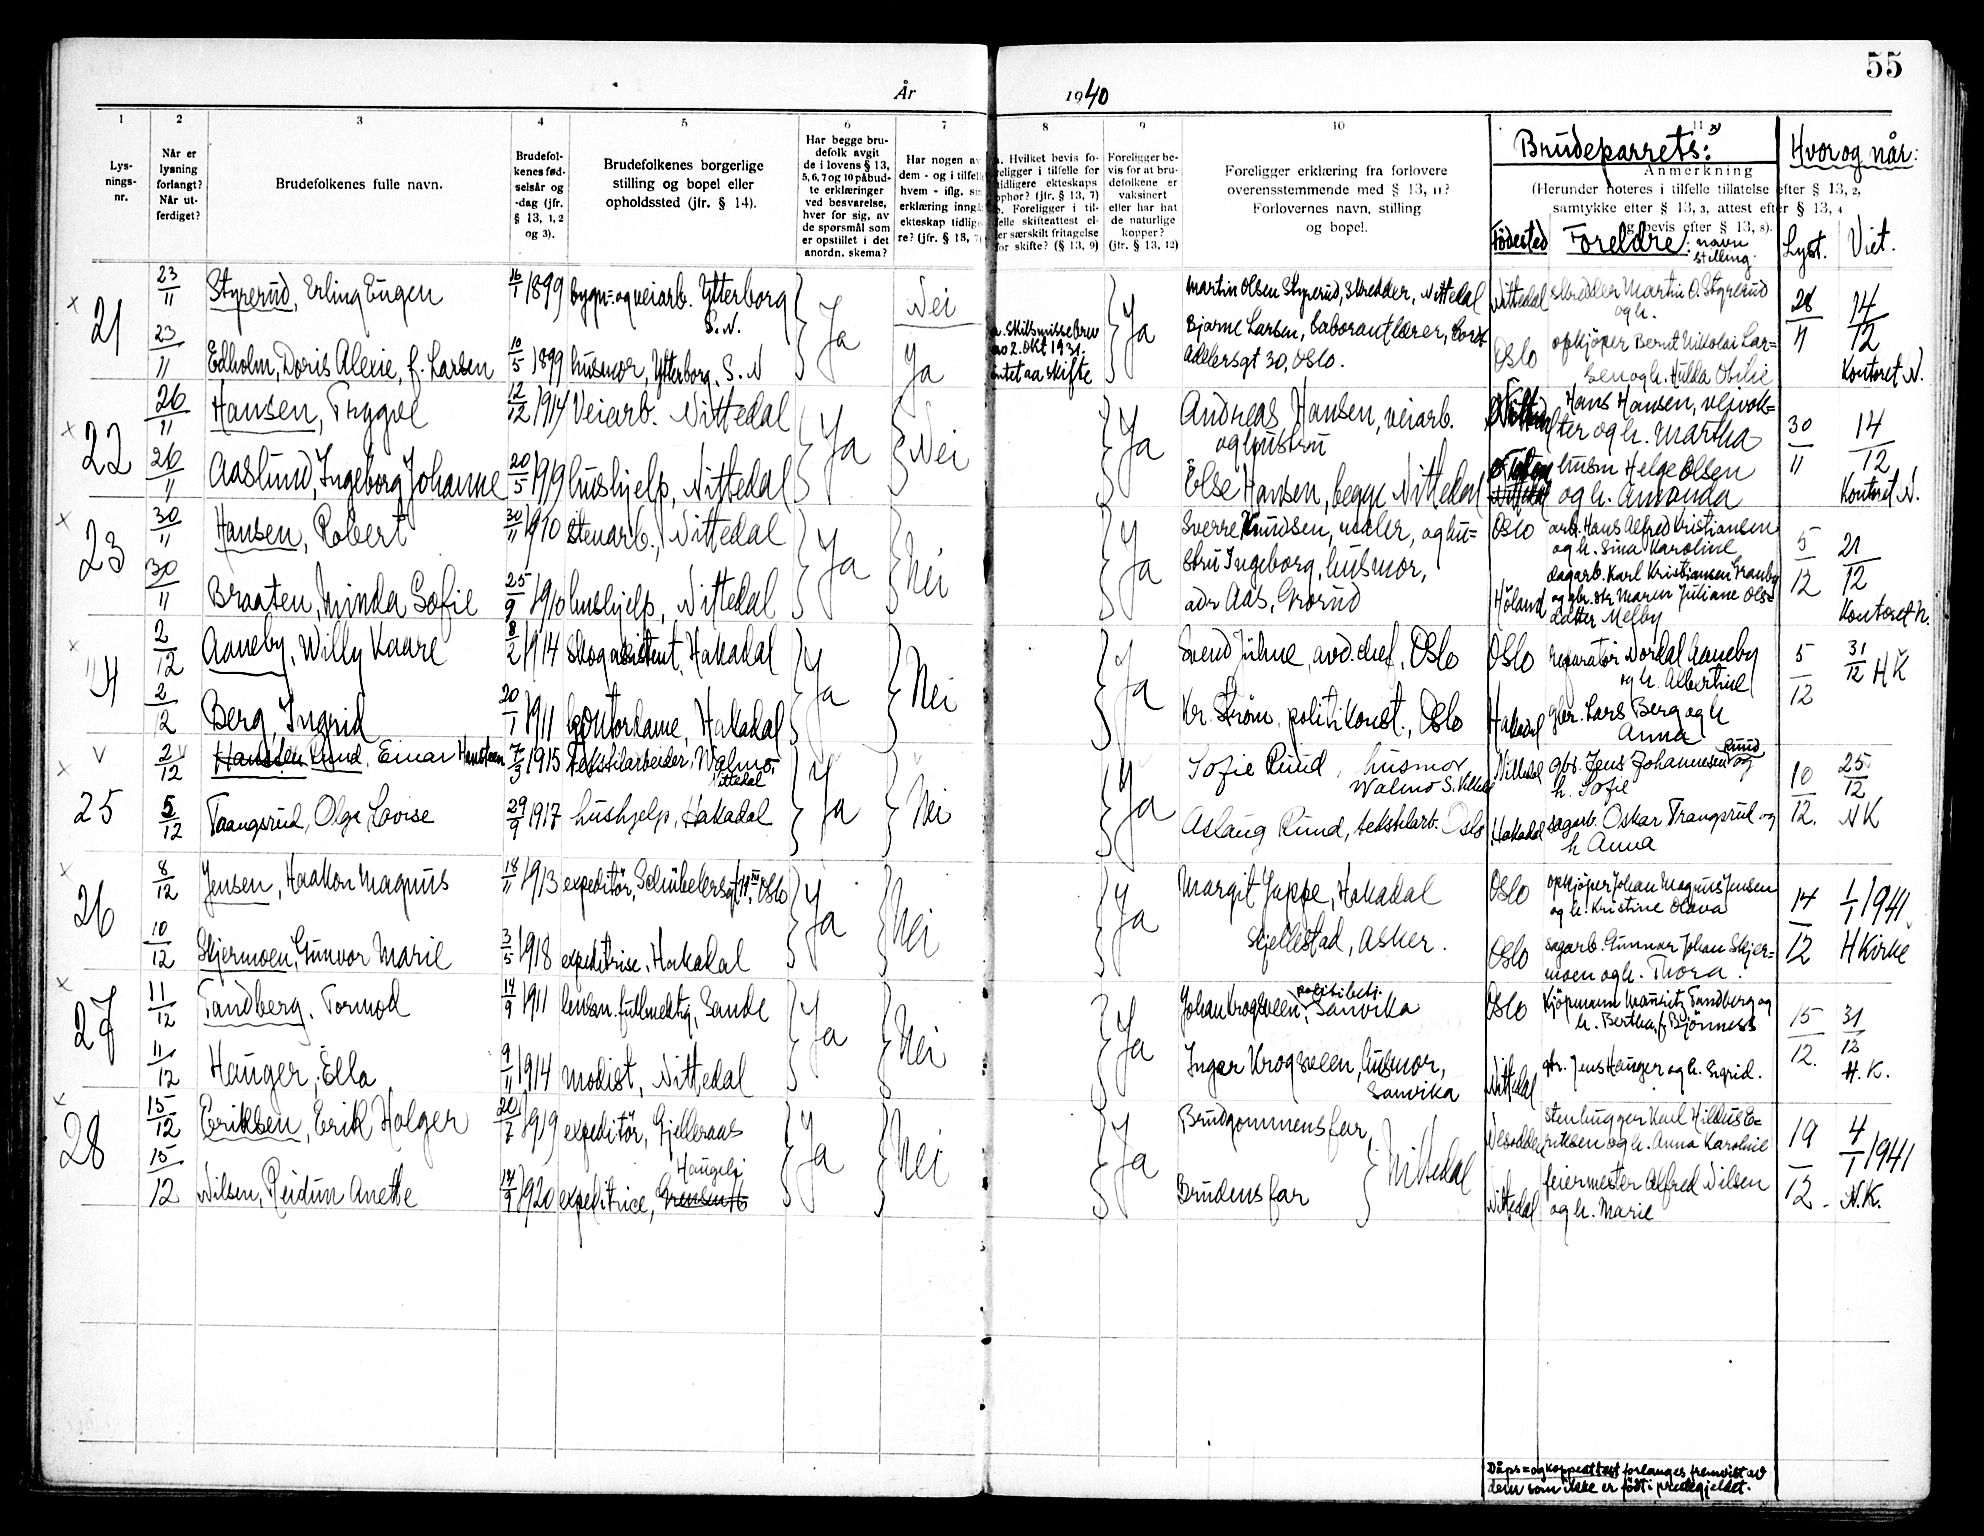 55
År 1940
1 2 3 4 5 6 7 8 9 10 11
Lys-
nings-
nr.
Når er
lysning
forlangt?
Når ut-
ferdiget?
Brudefolkenes fulle navn.
Brudefol-
kenes fød-
selsår og
-dag (jfr.
§ 13, 1, 2
og 3).
Brudefolkenes borgerlige
stilling og bopel eller
opholdssted (jfr. § 14).
Har begge bru-
defolk avgit
de i lovens § 13,
5, 6, 7 og 10 påbud-
te erklæringer
ved besvarelse,
hver for sig, av
de spørsmål som
er opstillet i det
anordn. skema?
Har nogen av
dem - og i tilfelle
hvem - iflg. sin
erklæring inngå
ekteskap tidlige
re? (jfr. § 13, 7)
a. Hvilket bevis fo-
religger i tilfelle for
tidligere ekteskaps
ophør? (jfr. § 13, 7)
b. Foreligger i til-
felle skifteattest el-
er særskilt fritagelse
for skifte? (§ 13, 9)
Foreligger be-
vis for at bru-
defolkene er
vaksinert
eller har hat
de naturlige
kopper?
(jfr. § 13, 12)
Foreligger erklæring fra forlovere
overensstemmende med § 13, 11?
Forlovernes navn, stilling
og bopel.
Brudeparrets:
Anmerkning
(Herunder noteres i tilfelle tillatelse efter § 13, 2,
samtykke efter § 13, 3, attest efter § 13, 4
og bevis efter § 13, 8).
Fødested Foreldre: navn
stilling.
Hvor og når:
Lyst. Viet.
21
23/11 Styrerud, Erling Eugen 16/1 1899 bygn.- og veiarb. Ytterborg
S. N.
Ja Nei
Martin Olsen Styrerud, skredder, Nittedal
Nittedal skredder Martin O. Styrerud
og h.
28/11 14/12
23/11 Edholm, Doris Alexie, f. Larsen 10/5 1899 husmor, Ytterborg. S. N
Ja
a. Skilsmissebrev
2. okt 1931.
intet aa skifte
Ja
Bjarne Larsen, laborantlærer,
Adelersgt 30, Oslo.
Oslo opkjøper Bernt Nikolai Lar=
sen og h. Hulda Otelie
Kontoret N.
22
26/11 Hansen, Trygve 12/12 1914 Veiarb. Nittedal
Ja Nei Ja
Andreas Hansen, veiarb.
og hustru
Hans Hansen, veivok=
ter og h. Martha
30/11 14/12
26/11 Aaslund, Ingeborg Johanne 20/5 1919 hushjelp, Nittedal
Else Hansen, begge Nittedal
husm Helge Olsen
og h. Amanda
Kontoret N.
23
30/11 Hansen, Robert 30/11 1910 stenarb., Nittedal
Ja Nei Ja
Sverre Knudsen, maler, og hu=
stru Ingeborg, husmor,
adr Aas, Grorud
Oslo arb. Hans Alfred Kristiansen
og h. Sina Karoline
5/12 21/12
30/11 Braaten, Minda Sofie 25/9 1910 hushjelp, Nittedal
Høland dagarb. Karl Kristiansen Granby
og gbr.dtr Maren Juliane Ols=
datter Melby
Kontoret N.
"4
2/12 Aaneby, Willy Kaare 8/2 1914 Skogassistent, Hakadal
Ja Nei Ja
Svend Jühne, avd.chef, Oslo
Oslo reparatør Nordal Aaneby
og h. Albertine
5/12 31/12 H K
2/12 Berg, Ingrid 20/1 1911 kontordame, Hakadal
Kr. Strøm, politikonst., Oslo
Hakadal gbr. Lars Berg og h
Anna
25
2/12 Hansten Ruud, Einar Hansteen 7/3 1915 tekstilarbeider, Walmo,
Nittedal
Ja Nei Ja
Sofie Ruud, husmor
Walmo S.
Nittedal gbr. Jens Johannesen Ruud og
h. Sofie
10/12. 25/12
NK
5/12 Taangsrud, Olga Lovise 29/9 1917 hushjelp, Hakadal
Aslaug Ruud, tekstilarb. Oslo
Hakadal sagarb. Oskar Trangsrud og
h Anna
26
8/12 Jensen, Haakon Magnus 18/11 1913 expeditør, Schübelersgt. Oslo
Ja Nei Ja
Margit Jappe, Hakadal
Skjellestad, Asker.
Oslo opkjøper Johan Magnus Jensen
og h. Kristine Olava
14/12 1/1 1941.
H Kirke
10/12 Skjermoen, Gunvor Marie 3/5 1918 expeditrise, Hakadal
Oslo sagarb. Gunnar Johan Skjer=
moen og h. Thora.
27
11/12 Tandberg, Tormod 14/9 1911 lensm.fullmektig, Sande
Ja Nei Ja
Johan Krogsveen, politibetj. Sanvika
Oslo Kjøpmann Mauritz Tandberg og
h. Bertha, f. Bjørness
15/12. 31/12
H. K.
11/12 Hauger, Ella 9/11 1914 modist, Nittedal
Inger Krogsveen, husmor,
Sanvika
Nittedal gbr. Jens Hauger og h. Sigrid.
28
15/12 Eriksen, Erik Holger 20/7 1919 expeditør, Gjelleraas
Ja Nei Ja
Brudgommens far,
Nesodden stenhugger Karl Hilkus E=
riksen og h. Anna Karoline
19/12. 4/1 1941
N.K.
15/12 Nilsen, Reidun Anette 14/9 1920 expeditrice, Haugeli
Brudens far
Nittedal
Nittedal feiermester Alfred Nilsen
og h. Marie
Dåps= og koppeattest forlanges fremvist av
dem som ikke er født i prestegjeldet.